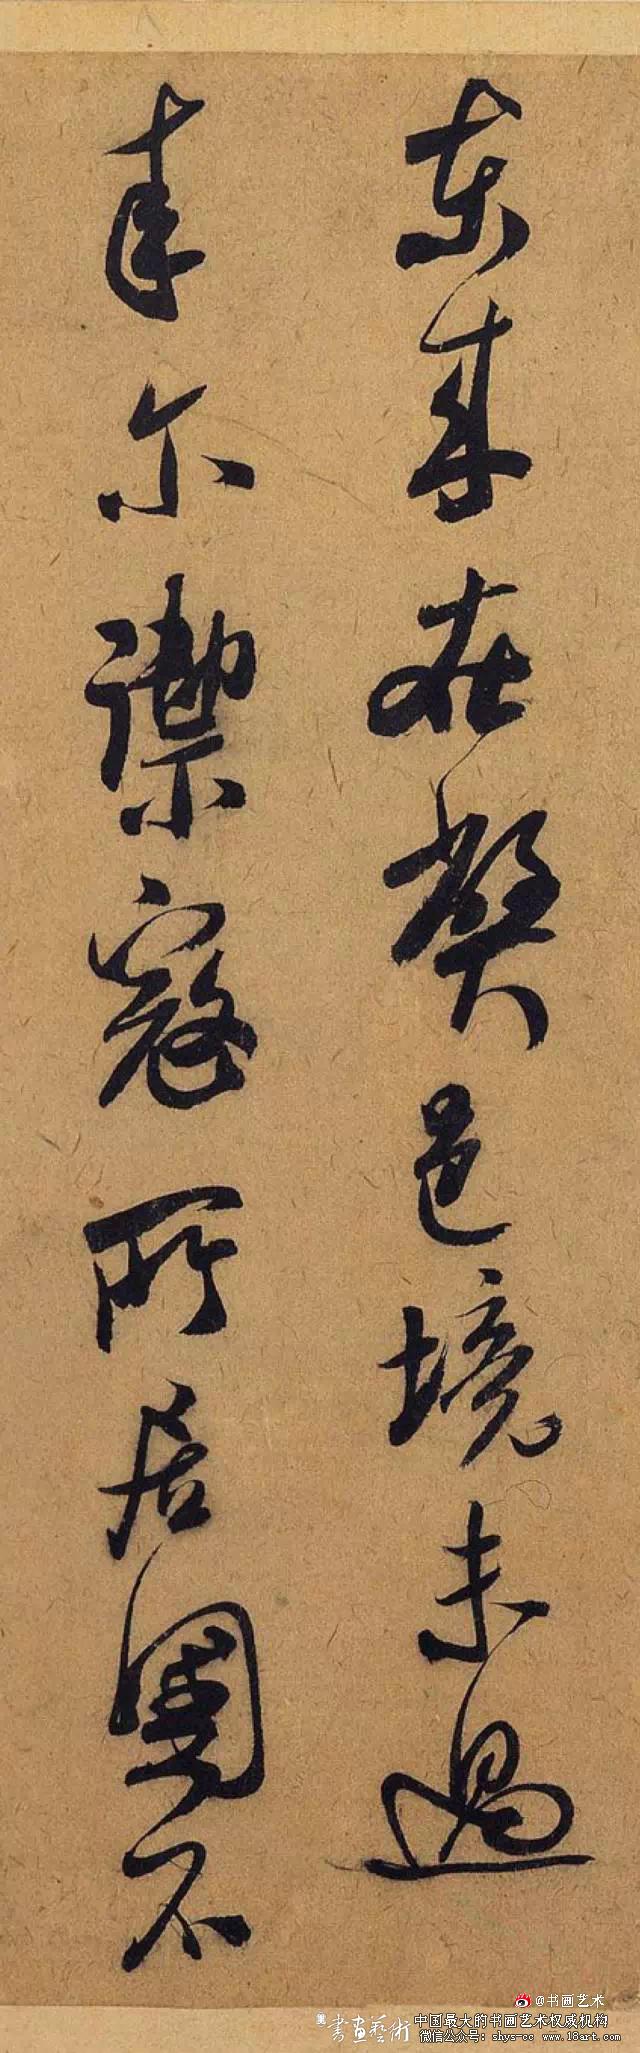 東來在邑境未過
尔禦寇所居不
@书画艺术
書畫藝術
中国最大的书画艺术权威机构
微信公众号：shys-cc www.18art.com